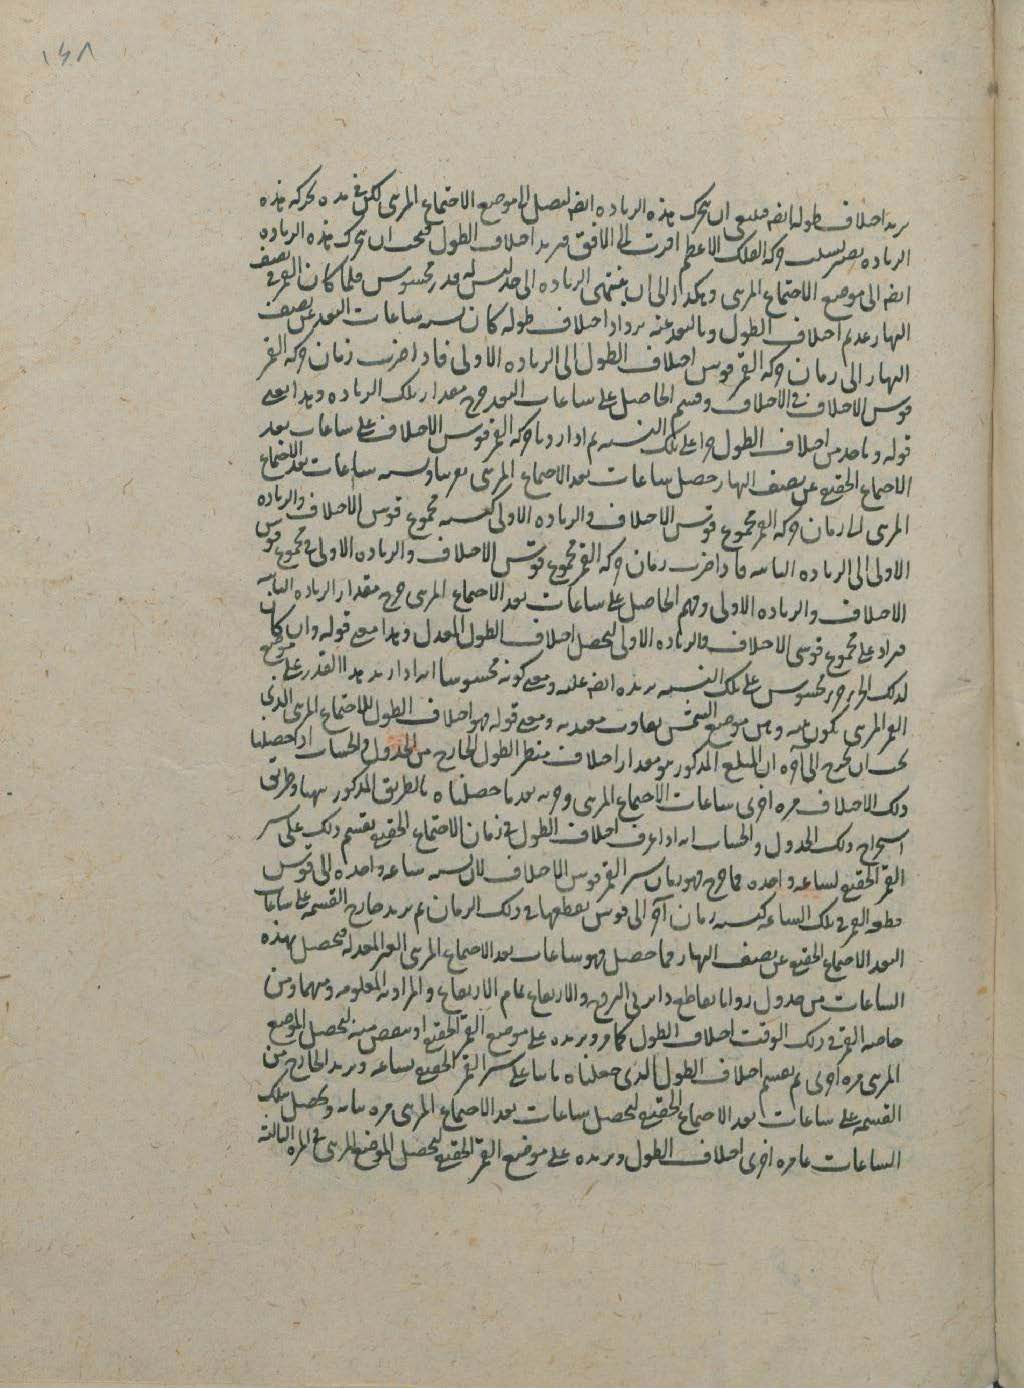 ١٤٨
يزيد اختلاف طوله ايضا فينبغى ان يتحرك هذه الزياده ايضا ليصل الى موضع الاجتماع المرئى لكن فى مده تحركه هذه
الزياده يصير بسبب حركه الفلك الاعظم اقرب الى الافق فيزيد اختلاف الطول فيجب ان يتحرك هذه الزياده
ايضا الى موضع الاجتماع المرئى وهكذا الى ان ينتهى الزياده الى حد ليس له قدر محسوس فلما كان القمر فى نصف
النهار عديم اختلاف الطول وبالبعد عنه يزداد اختلاف طوله كان نسبه ساعات البعد عن نصف
النهار الى زمان حركه القمر قوس اختلاف الطول الى الزياده الاولى فاذا ضرب زمان حركه القمر
قوس الاختلاف فى الاختلاف وقسم الحاصل على ساعات البعد خرج مقدار تلك الزياده وهذا معنى
قوله وناخذ من اختلاف الطول جزءا على تلك النسبه ثم اذا زدنا حركه القمر قوس الاختلاف على ساعات بعد
الاجتماع الحقيقى عن نصف النهار حصل ساعات بعد الاجتماع المرئى تقريبا ونسبه ساعات بعد الاجتماع
المرئى الى زمان حركه القمر مجموع قوس الاختلاف والزياده الاولى كنسبه مجموع قوس الاختلاف والزياده
الاولى الى الزياده الثانيه فاذا ضرب زمان حركه القمر مجموع قوس الاختلاف والزياده الاولى فى مجموع قوس
الاختلاف والزياده الاولى وقسم الحاصل على ساعات بعد الاجتماع المرئى خرج مقدار الزياده الثانيه
فيزاد على مجموع قوسى الاختلاف والزياده الاولى ليحصل اختلاف الطول المعدل وهذا معنى قوله وان كان
لذلك الجزء جزء محسوس على تلك النسبه نزيده ايضا عليه ومعنى كونه محسوسا انه اذا زيد هذا القدر على موضع
القمر المرئى يكون بينه وبين موضع الشمس تفاوت معتد به ومعنى قوله فهو اختلاف الطول للاجتماع المرئى الذى
يجب ان يخرج الى آخره ان المبلغ المذكور هو مقدار اختلاف منظر الطول الخارج من الجدول فى الحساب اذا حصلنا
ذلك الاختلاف مره اخرى ساعات الاجتماع المرئى وجزءه بعد ما حصلناه بالطريق المذكور ههنا وطريق
استخراج ذلك الجدول والحساب انه اذا عرف اختلاف الطول فى زمان الاجتماع الحقيقى يقسم ذلك على سير
القمر الحقيقى لساعه واحده فما خرج فهو زمان سير القمر قوس الاختلاف لان نسبه ساعه واحده الى قوس
قطعه القمر فى تلك الساعه كنسبه زمان آخر الى قوس يقطعها فى ذلك الزمان ثم يزيد خارج القسمه على ساعات
البعد الاجتماع الحقيقى عن نصف النهار فما حصل فهو ساعات بعد الاجتماع المرئى الغير المعدله فيحصل بهذه
الساعات من جدول زوايا تقاطع دايرتى البروج والارتفاع تمام الارتفاع والزاويه المعلومه ومنهما ومن
خاصه القمر فى ذلك الوقت اختلاف الطول كما مر ونزيده على موضع القمر الحقيقى او ننقص منه ليحصل الموضع
المرئى مره اخرى ثم نقسم اختلاف الطول الذى حصلناه ثانيا على سير القمر الحقيقى لساعه ونزيد الخارج من
القسمه على ساعات بعد الاجتماع الحقيقى ليحصل ساعات بعد الاجتماع المرئى مره ثانيه ونحصل بتلك
الساعات مره اخرى اختلاف الطول ونزيده على موضع القمر الحقيقى ليحصل الموضع المرئى فى المره الثالثه